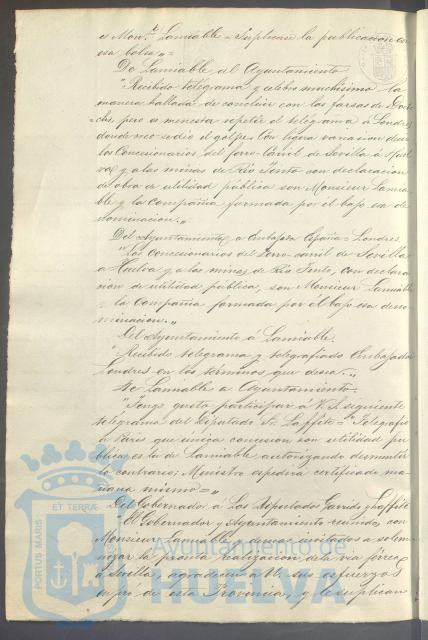 á Mon.r Lamiable = Suplicase la publicacion en
esa bolsa"=
De Lamiable al Ayuntamiento
"Recibido telegrama y celebro muchisimo la
manera hallada de concluir con las farsas de
che, pero es menester repetir el telegrama á Londres
donde se dio el golpe. Con ligera variacion decir
los Concesionarios del ferro-Carril de Sevilla á Huel
va y a las minas de Rio Tinto con declaracion
de obra de utilidad pública son Monsieur Lamia
ble y la Compañia formada por él bajo esa de
nominacion."
Del Ayuntamiento á Embajada España = Londres
"Los Concesionarios del ferro-carril de Sevilla
a Huelva y á las minas de Rio Tinto, con declara
cion de utilidad pública, son Monsieur Lamiable
y la Compañia formada por él bajo esa deno
minacion."
Del Ayuntamiento á Lamiable.
"Recibido telegrama y telegrafiado Embajada
Londres en los terminos que desea."
De Lamiable a Ayuntamiento.
"Tengo gusto participar á V. S. siguiente
telegrama del Diputado Sr. Laffite = "Telegrafio
a Paris que unica concesion con utilidad pu
blica es la de Lamiable autorizando desmentir
lo contrario; Ministro espedira certificado ma
ñana mismo="
Del Gobernador á Los Diputados Garrido y Laffite
El Gobernador y Ayuntamiento reunido con
Monsieur Lamiable y demas invitados a solem
nizar la pronta realizacion de la via férrea
a Sevilla, agradecen á VV. sus esfuerzos
en pro de esta Provincia, y le suplican
PORTUS MARIS ET TERRÆ
Ayuntamiento de
HUELVA